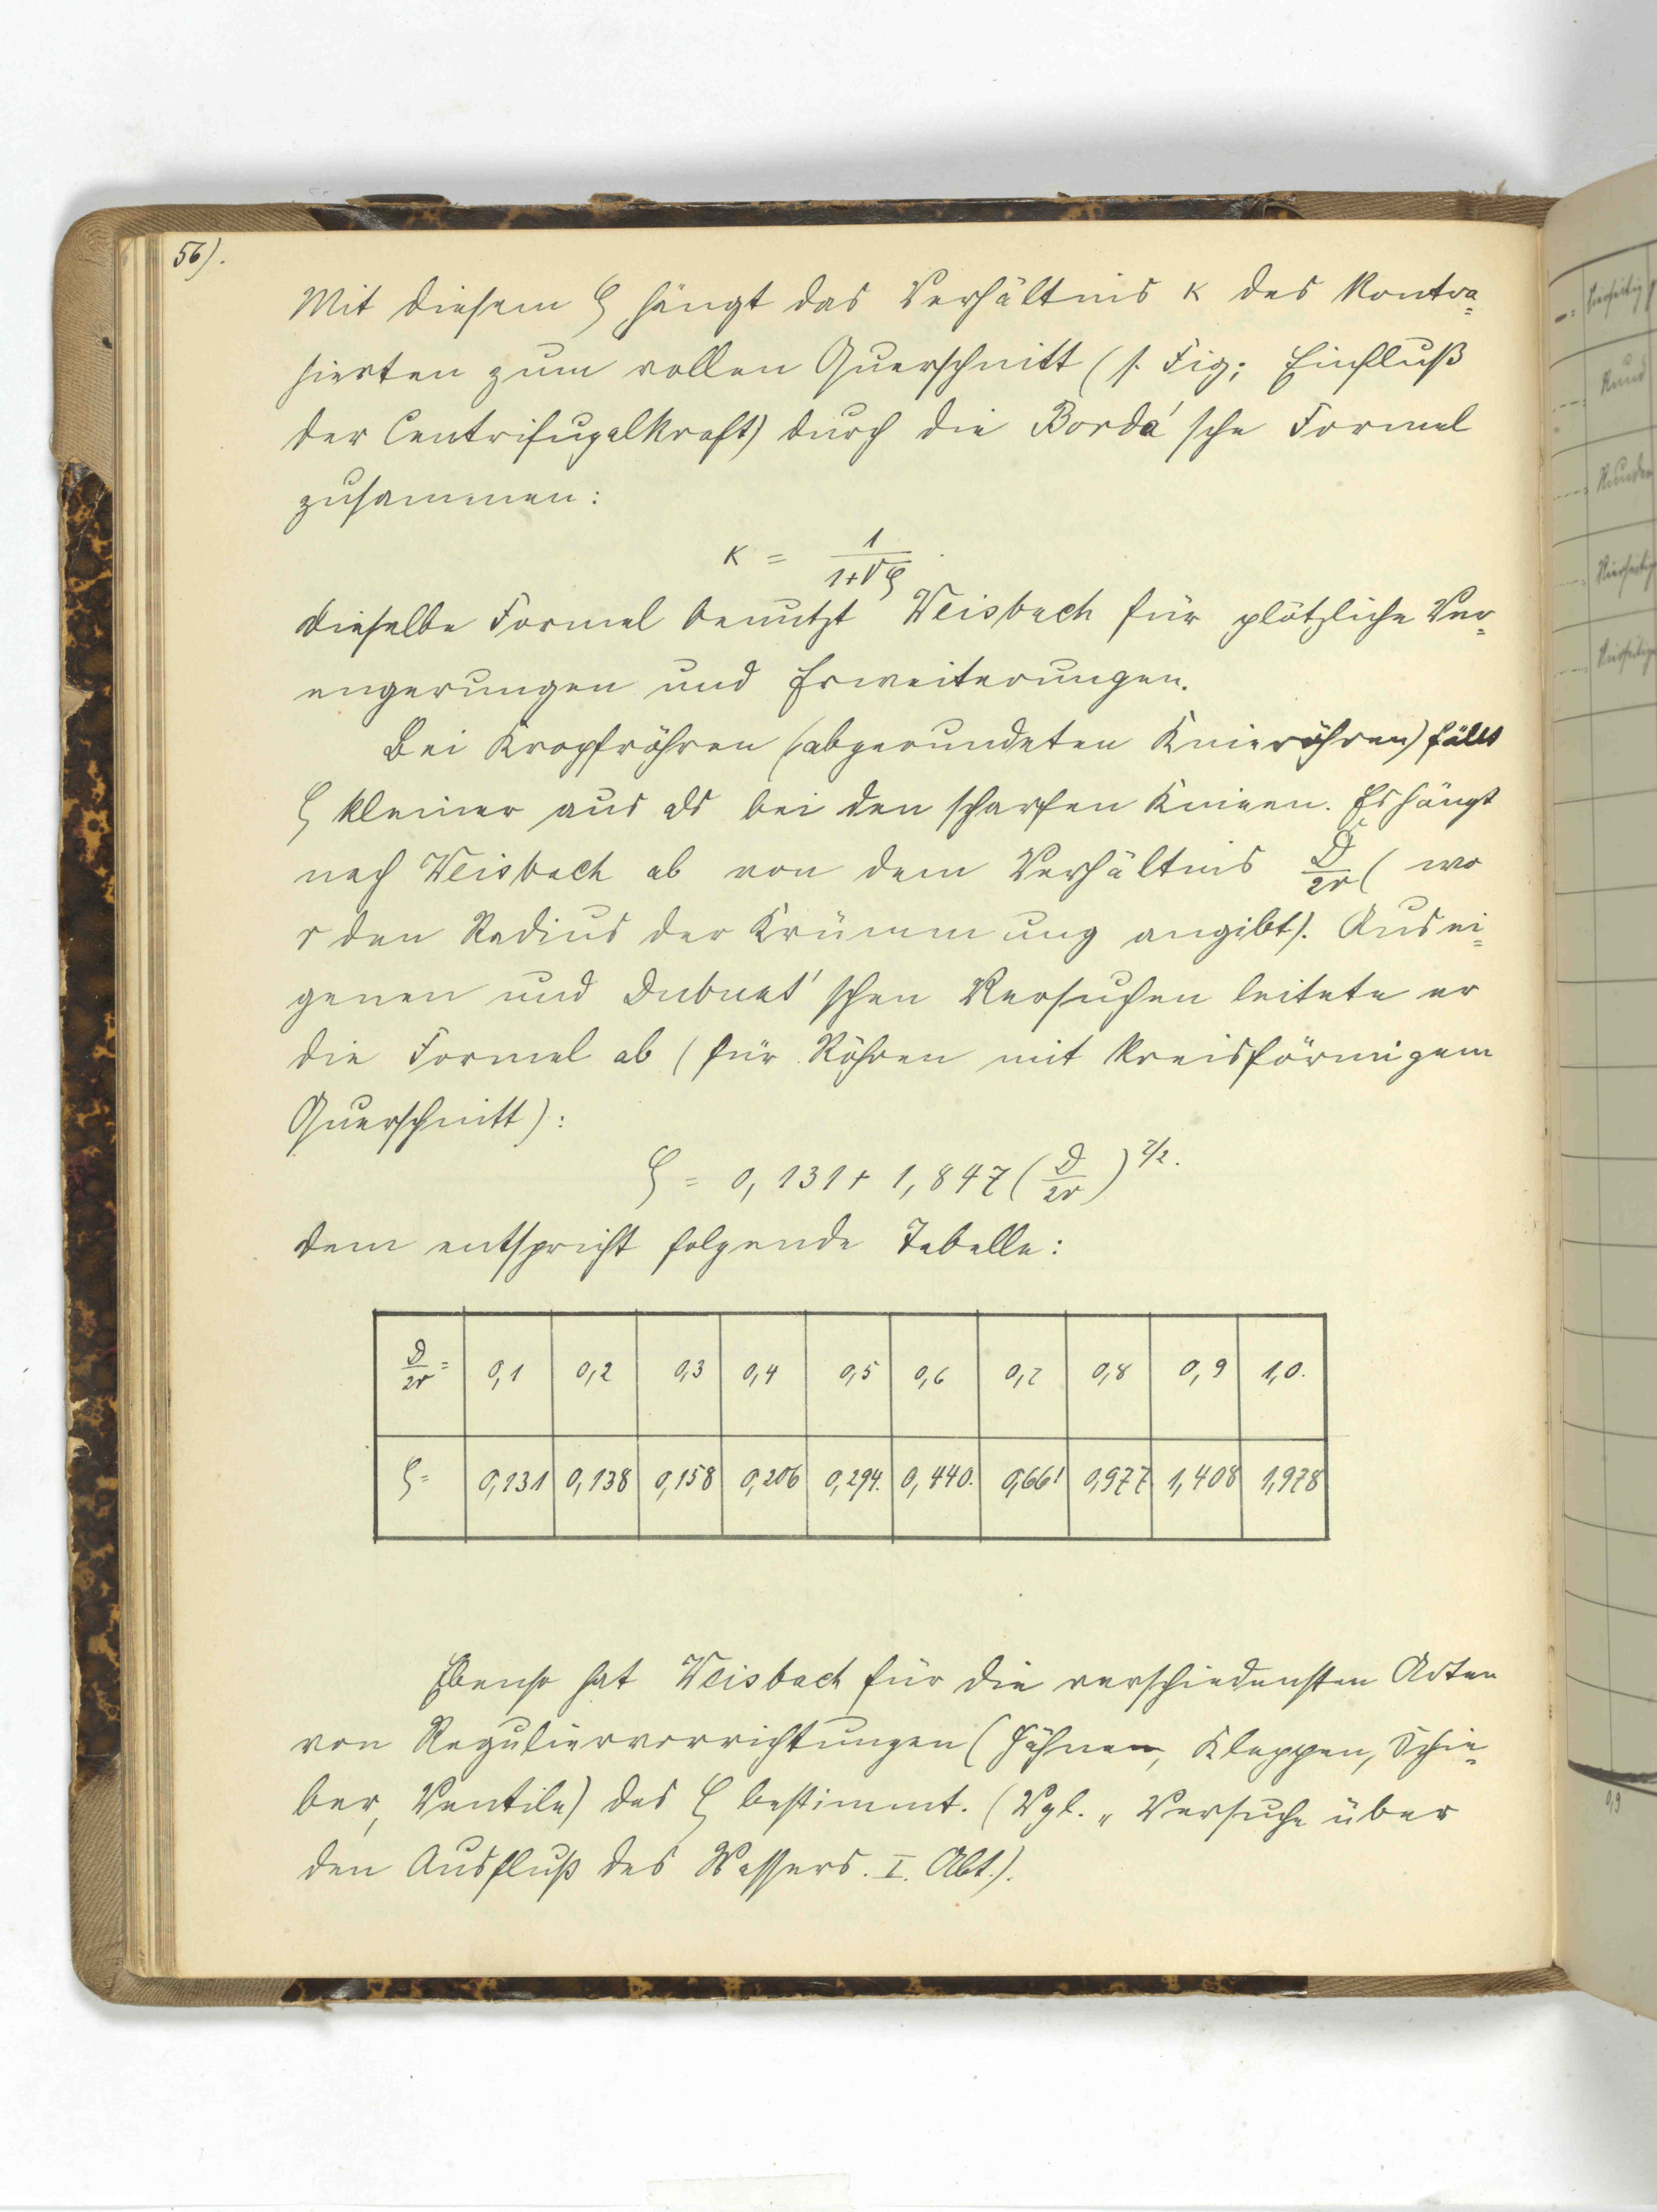 56).
Mit diesem ζ hängt das Verhältnis κ des kontra=
hierten zum vollen Querschnitt (s. Fig; Einfluß
der Centrifugalkraft) durch die Bordá'sche Formel
zusammen:
κ = 1/(1+√ζ)
Dieselbe Formel benutzt Weisbach für plötzliche Ver=
engerungen und Erweiterungen.
Bei Kropfröhren (abgerundeten Knieröhren) fällt
ζ kleiner aus als bei den scharfen Knieen. Es hängt
nach Weisbach ab von dem Verhältnis D/2r (wo
r den Radius der Krümmung angibt). Aus ei=
genen und Dubuat'schen Versuchen leitete er
die Formel ab (für Röhren mit kreisförmigem
Querschnitt):
ζ = 0,131 + 1,847 (D/2r)^7/2.
dem entspricht folgende Tabelle:
D/2r = 0,1 0,2 0,3 0,4 0,5 0,6 0,7 0,8 0,9 1,0.
ζ = 0,131 0,138 0,158 0,206 0,294. 0,440. 0,661 0,977 1,408 1,978
Ebenso hat Weisbach für die verschiedensten Arten
von Reguliervorrichtungen (Hähnen, Klappen, Schie=
ber, Ventile) das ζ bestimmt. (Vgl. „Versuche über
den Ausfluß des Wassers. I. Abt.).
Rund
0,9